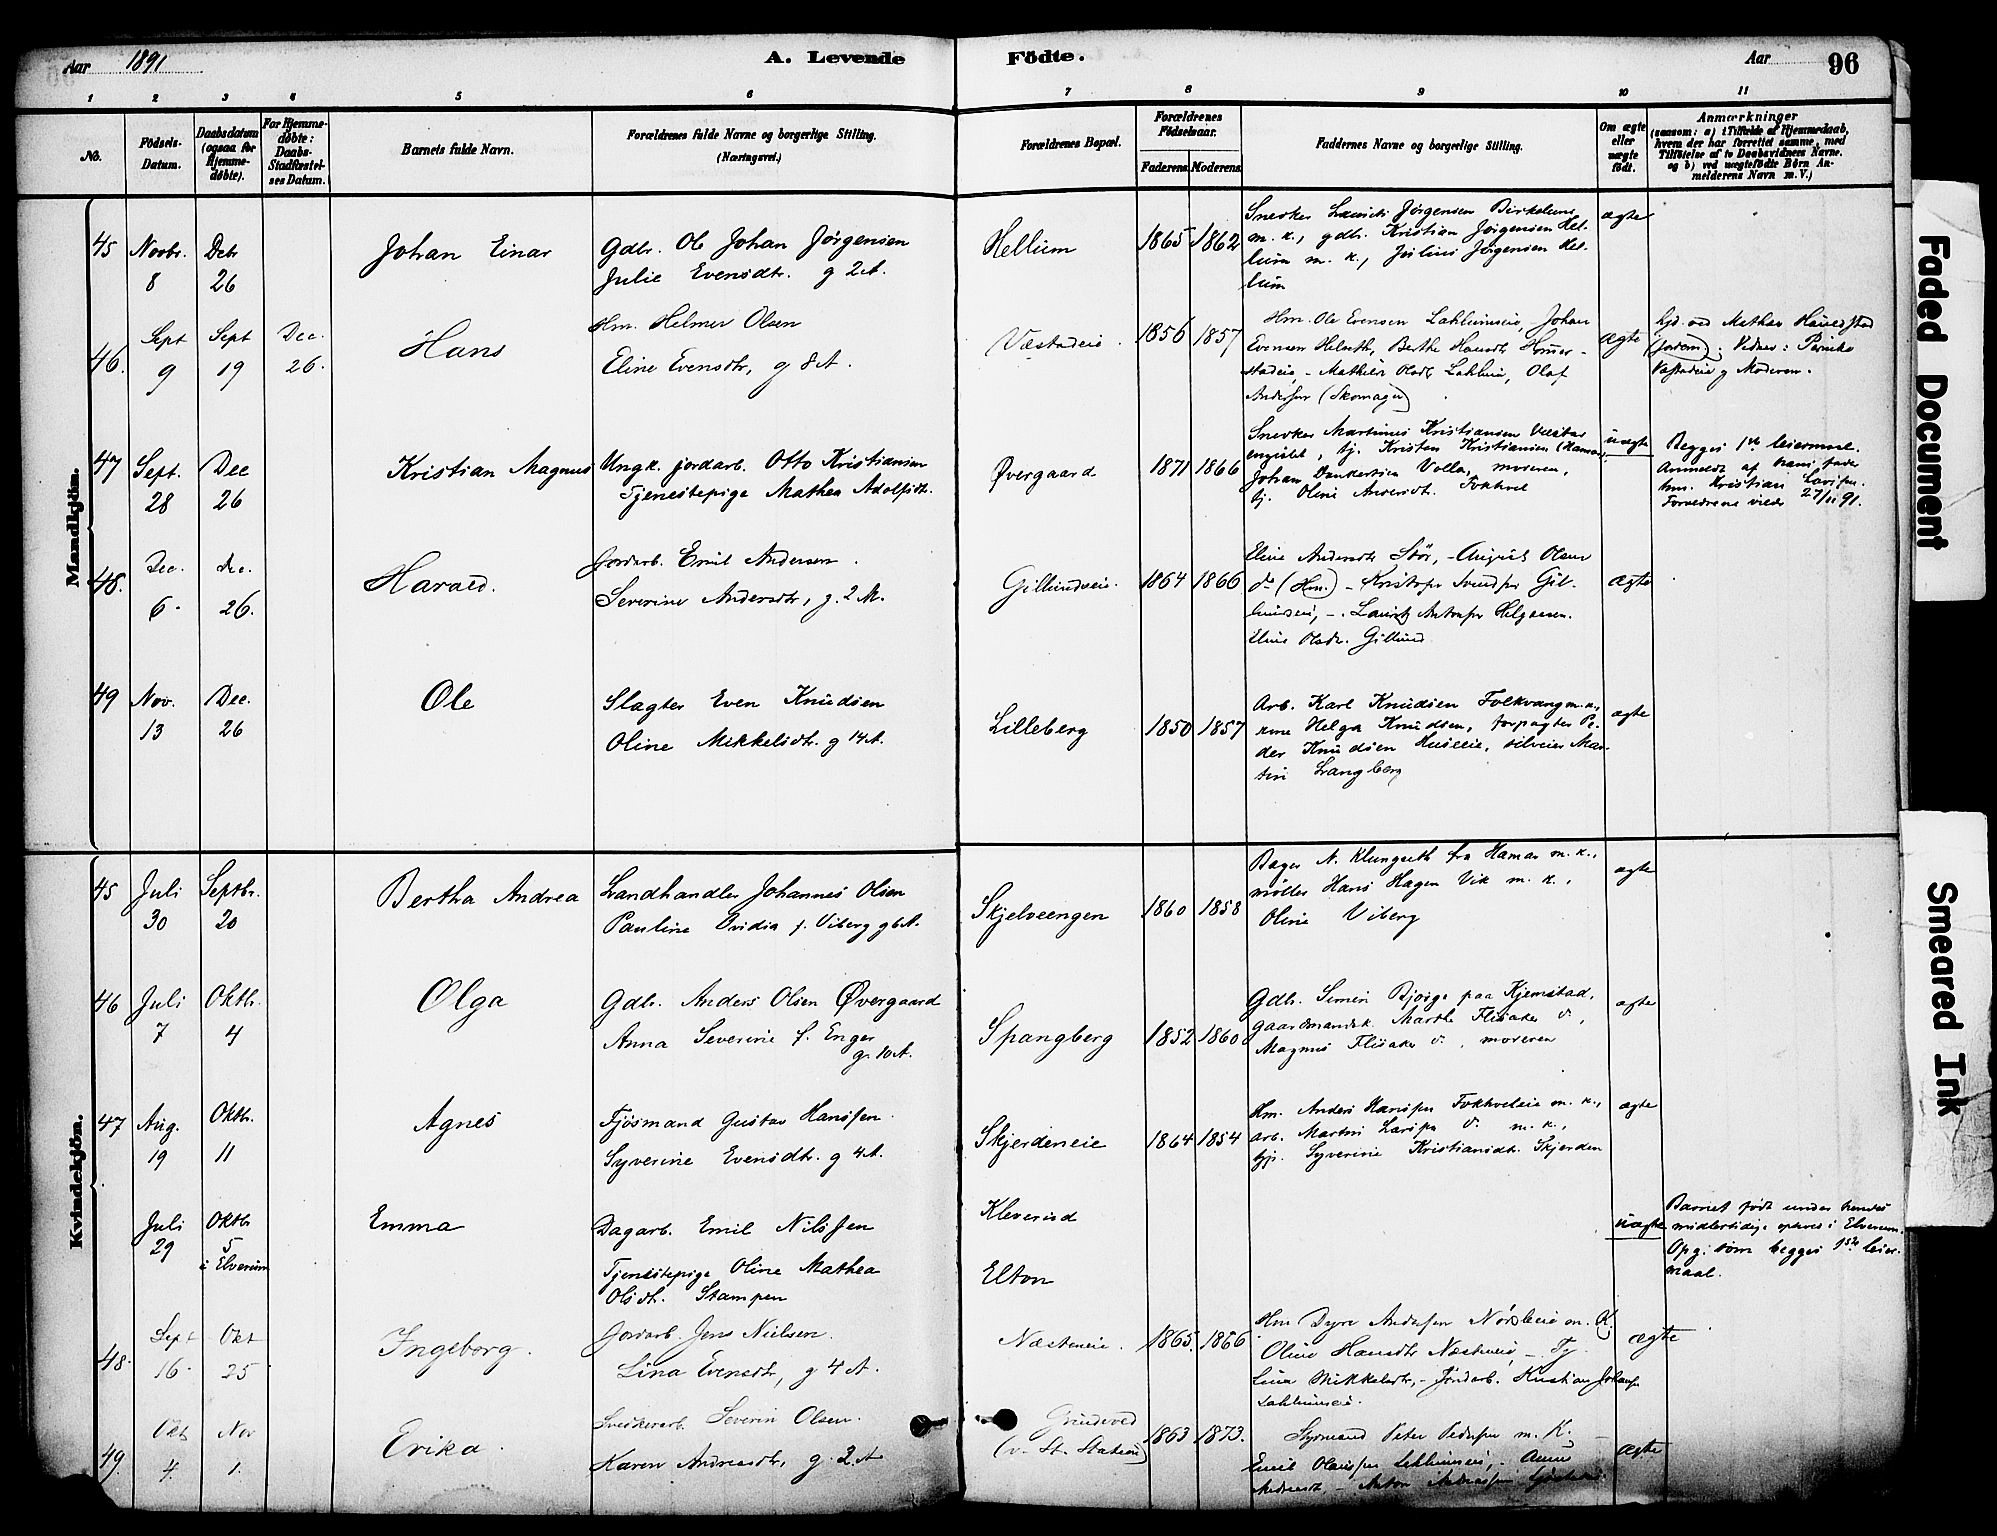 Aar 1891
A. Levende Födte.
Aar
96
1 2 3 4 5 6 7 8 9 10 11
No.
Födsels-Datum.
Daabsdatum (ogsaa for Hjemme-døbte).
For Hjemme-døbte: Daabs-Stadfæstel-ses Datum.
Barnets fulde Navn.
Forældrenes fulde Navne og borgerlige Stilling. (Næringsvei.)
Forældrenes Bopæl.
Forældrenes Födselsaar.
Faderens Moderens
Faddernes Navne og borgerlige Stilling.
Om ægte eller uægte födt.
Anmærkninger
(saasom: a) i Tilfælde af Hjemmedaab,
hvem der har forrettet samme, med
Tilföielse af to Daabsvidners Navne,
og b) ved uægtefödte Börn An-
melderens Navn m. V.)
Mandkjön.
45 Novbr. 8 Debr 26 Johan Einar
Gdbr. Ole Johan Jörgensen
Julie Evensdtr. g 2 A.
Hellum 1865 1862
Snedker Lauritz Jørgensen Birkelund
m. k., gdbr. Kristian Jørgensen Hel-
lum m. k., Julius Jørgensen Hel-
lum
ægte
46. Sept 9 Sept 19 Dec. 26. Hans
Hm. Helmer Olsen
Eline Evensdtr, g 8 A.
Væstadeie. 1856 1857
Hm. Ole Evensen Lahlumseie, Johan
Evensen Helseth, Berthe Hansdtr
stadeie, - Mathilde Olsdtr Lahlumeie, Olaf
Andersen (Skomager)
ægte
hjd. ved Mathea
(Jordem). Vidner:
Væstadeie og Moderen.
47 Sept. 28 Dec 26 Kristian Magnus
Ungk. jordarb. Otto Kristiansen
Tjenestepige Mathea Adolfsdtr.
Øvergaard 1871 1866
Snedker Martinus Kristiansen Væstad
engislet, tj. Kristen Kristiansen (Hamar),
Johan Volla, moderen,
tj. Oline Andersdtr. Fokhol
uægte
Begges 1ste leiermaal.
Anmeldt af hans fader
hm. Kristian Larsen.
Forældrene viede 27/11 91.
48. Dec. 6. Dec. 26. Harald.
Jordarb. Emil Andersen.
Severine Andersdtr, g. 2 A.
Gillundseie. 1864 1866
Eline Andersdtr Stör, - August Olsen
do (Hm.) - Kristofer Svendsen Gil-
lundseie, - Lauritz Antonsen Helgesen.
Eline Olsdtr. Gillund
ægte
49 Nov. 13 Dec. 26 Ole
Slagter Even Knudsen
Oline Mikkelsdtr. g 14 A.
Lilleberg 1850 1857
Arb. Karl Knudsen Folkvang m. k.,
Helga Knudsen, forpagter Pe-
der Knudsen Huseeie, selveier Mar-
tin Langberg
ægte
Kvindekjön.
45 Juli 30 Septbr. 20 Bertha Andrea
Landhandler Johannes Olsen
Pauline Ovidia f. Viberg g 6 A.
Skjelveengen 1860 1858
Bager N. Klungseth fra Hamar m. k.,
møller Hans Hagen Vik m. k.,
Oline Viberg
ægte
46 Juli 7 Oktbr. 4 Olga
Gdbr. Anders Olsen Øvergaard
Anna Severine f. Enger
g. 10 A.
Spangberg 1852 1860
Gdbr. Simen Bjørge paa Kjemstad,
gaardmandsk. Marthe Flisaker v.,
Magnus Flisaker v., moderen
ægte
47 Aug. 19 Oktbr. 11 Agnes
Fjøsmand Gustav Hanssen
Syverine Evensdtr. g 4 A.
Skjerdeneie 1864 1854
Hm. Anders Hanssen Fokholeie m. k.,
arb. Martin Larsen v. m. k.,
tjp. Syverine Kristiansdtr. Skjerden
ægte
Juli 29 Oktbr 5 i Elverum Emma
Dagarb. Emil Nilssen
Tjenestepige Oline Mathea
Olsdtr. Stampen
Kleverud
Elton
uægte
Barnet født under hendes
midlertidige ophold i Elverum.
Opg. som begges 1ste leier-
maal.
48. Sept 16. Okt 25 Ingeborg.
Jordarb. Jens Nielsen.
Lina Evensdtr, g 4 A.
Næsteneie. 1865. 1866
Hm Dyre Andersen m. K.
Oline Hansdtr Næsteneie, - Tj.
Lina Mikkelsdtr, - Jordarb. Kristian Johansen
Lahlumseie.
ægte
49. Okt 4. Nov 1. Erika.
Snedkerarb. Severin Olsen.
Karen Andreasdtr, g. 2 A
Grindved
(v. St. Station) 1863 1873.
Styrmand Peter Pedersen m. K. -
Emil Olaussen Lahlumseie, - Anne
Andreasdtr, - Anton Andreassen
ægte
Faded Document
Smeared Ink